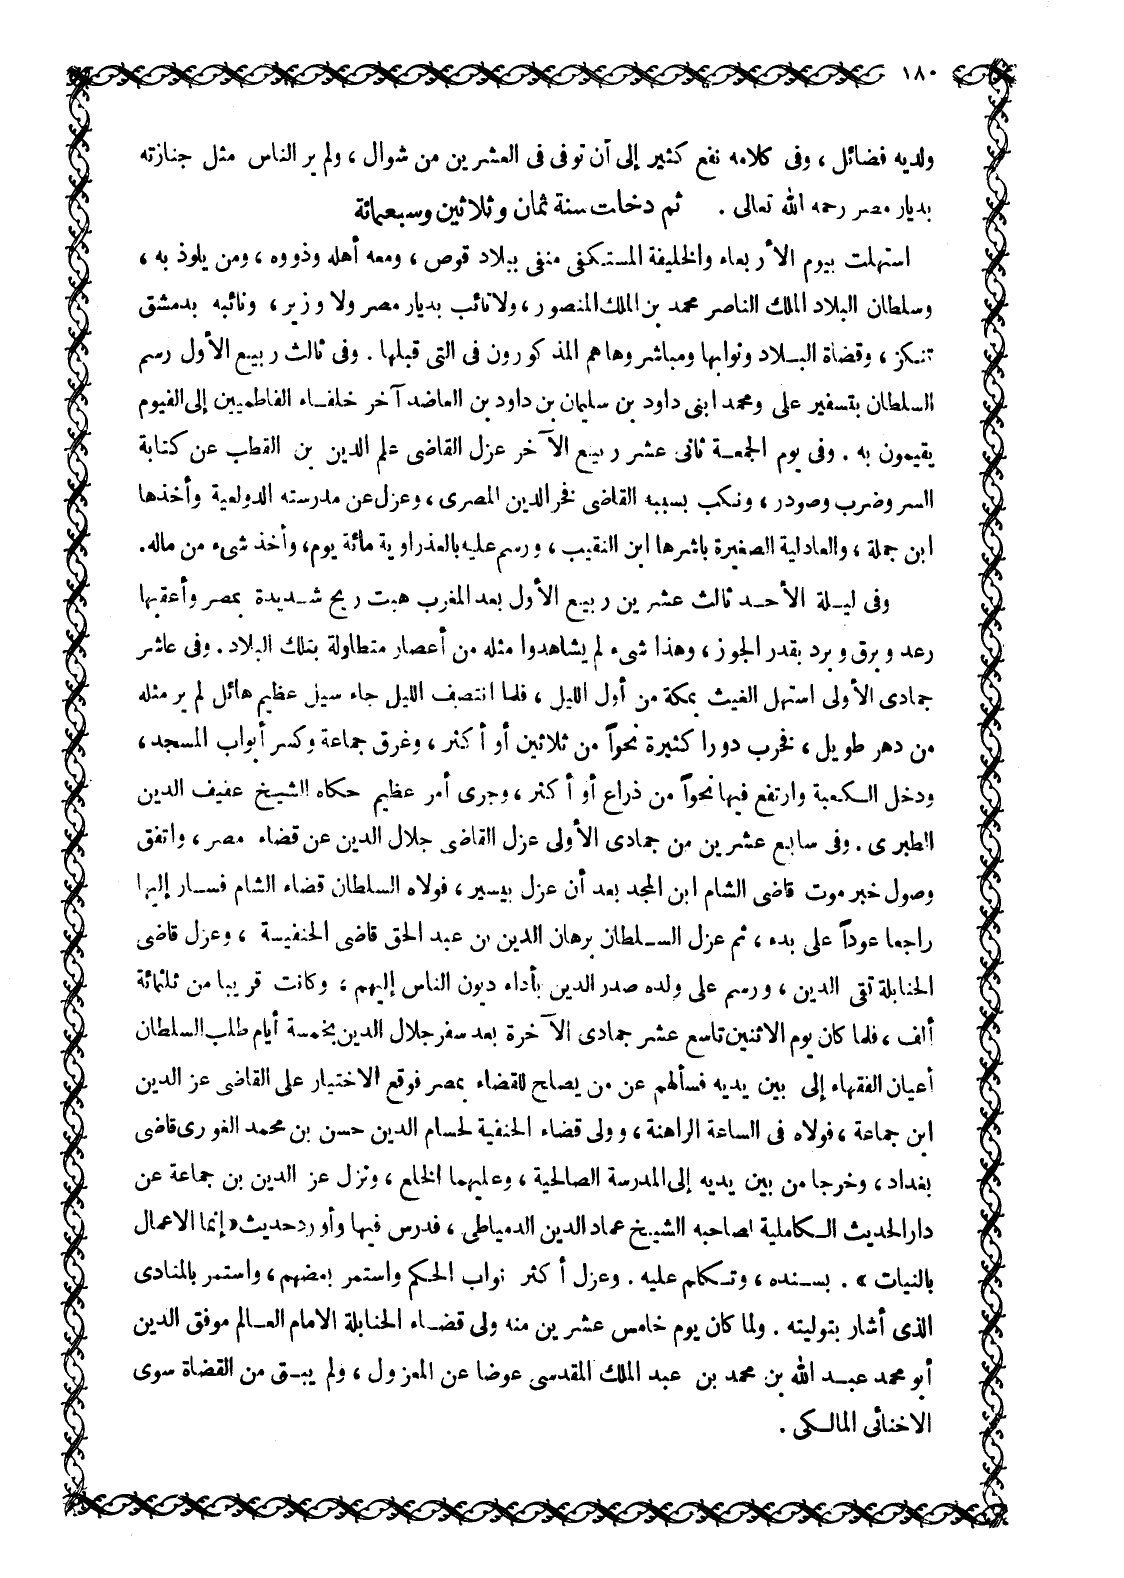 ١٨٠
ولديه فضائل ، وفى كلامه نفع كثير إلى أن توفى فى العشرين من شوال ، ولم ير الناس مثل جنازته
بديار مصر رحمه الله تعالى . ثم دخلت سنة ثمان وثلاثين وسبعمائة
استهلت بيوم الأربعاء والخليفة المستكفى منفى ببلاد قوص ، ومعه أهله وذووه ، ومن يلوذ به ،
وسلطان البلاد الملك الناصر محمد بن الملك المنصور ، ولا نائب بديار مصر ولا وزير ، ونائبه بدمشق
تنكز ، وقضاة البلاد ونوابها ومباشروها هم المذكورون فى التى قبلها . وفى ثالث ربيع الأول رسم
السلطان بتسفير على ومحمد ابنى داود بن سليمان بن داود بن العاضد آخر خلفاء الفاطميين إلى الفيوم
يقيمون به . وفى يوم الجمعة ثانى عشر ربيع الآخر عزل القاضى علم الدين بن القطب عن كتابة
السر وضرب وصودر ، ونكب بسببه القاضى فخر الدين المصرى ، وعزل عن مدرسته الدولعية وأخذها
ابن جملة ، والعادلية الصغيرة باشرها ابن النقيب ، ورسم عليه بالعذراوية مائة يوم ، وأخذ شىء من ماله .
وفى ليلة الأحد ثالث عشرين ربيع الأول بعد المغرب هبت ريح شديدة بمصر وأعقبها
رعد وبرق وبرد بقدر الجوز ، وهذا شىء لم يشاهدوا مثله من أعصار متطاولة بتلك البلاد . وفى عاشر
جمادى الأولى استهل الغيث بمكة من أول الليل ، فلما انتصف الليل جاء سيل عظيم هائل لم ير مثله
من دهر طويل ، فخرب دورا كثيرة نحواً من ثلاثين أو أكثر ، وغرق جماعة وكسر أبواب المسجد ،
ودخل الكعبة وارتفع فيها نحواً من ذراع أو أكثر ، وجرى أمر عظيم حكاه الشيخ عفيف الدين
الطبرى . وفى سابع عشرين من جمادى الأولى عزل القاضى جلال الدين عن قضاء مصر ، واتفق
وصول خبر موت قاضى الشام ابن المجد بعد أن عزل بيسير ، فولاه السلطان قضاء الشام فسار إليها
راجعا عوداً على بدء ، ثم عزل السلطان برهان الدين بن عبد الحق قاضى الحنفيسة ، وعزل قاضى
الحنابلة تقى الدين ، ورسم على ولده صدر الدين بأداء ديون الناس إليهم ، وكانت قريبا من ثلثمائة
ألف ، فلما كان يوم الاثنين تاسع عشر جمادى الآخرة بعد سفر جلال الدين بخمسة أيام طلب السلطان
أعيان الفقهاء إلى بين يديه فسألهم عن من يصلح للقضاء بمصر فوقع الاختيار على القاضى عز الدين
ابن جماعة ، فولاه فى الساعة الراهنة ، وولى قضاء الحنفية لحسام الدين حسن بن محمد الغورى قاضى
بغداد ، وخرجا من بين يديه إلى المدرسة الصالحية ، وعليهما الخلع ، ونزل عز الدين بن جماعة عن
دار الحديث الكاملية لصاحبه الشيخ عماد الدين الدمياطى ، فدرس فيها وأورد حديث « إنما الاعمال
بالنيات » . بسنده ، وتكلم عليه . وعزل أكثر نواب الحكم واستمر بعضهم ، واستمر بالمنادى
الذى أشار بتوليته . ولما كان يوم خامس عشرين منه ولى قضاء الحنابلة الامام العالم موفق الدين
أبو محمد عبد الله بن محمد بن عبد الملك المقدسى عوضا عن المعزول ، ولم يبق من القضاة سوى
الاخنائى المالكى .